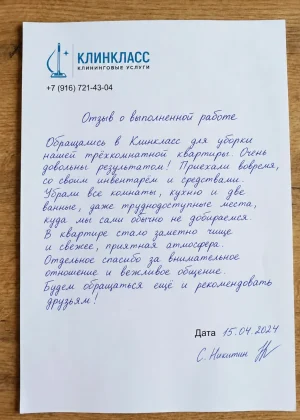 КЛИНКЛАСС
КЛИНИНГОВЫЕ УСЛУГИ
+7 (916) 721-43-04
Отзыв о выполненной работе
Обращались в Клинкласс для уборки
нашей трёхкомнатной квартиры. Очень
довольны результатом! Приехали вовремя,
со своим инвентарём и средствами.
Убрали все комнаты, кухню и две
ванные, даже труднодоступные места,
куда мы сами обычно не добираемся.
В квартире стало заметно чище
и свежее, приятная атмосфера.
Отдельное спасибо за внимательное
отношение и вежливое общение.
Будем обращаться ещё и рекомендовать
друзьям!
Дата 15.04.2024
С. Никитин